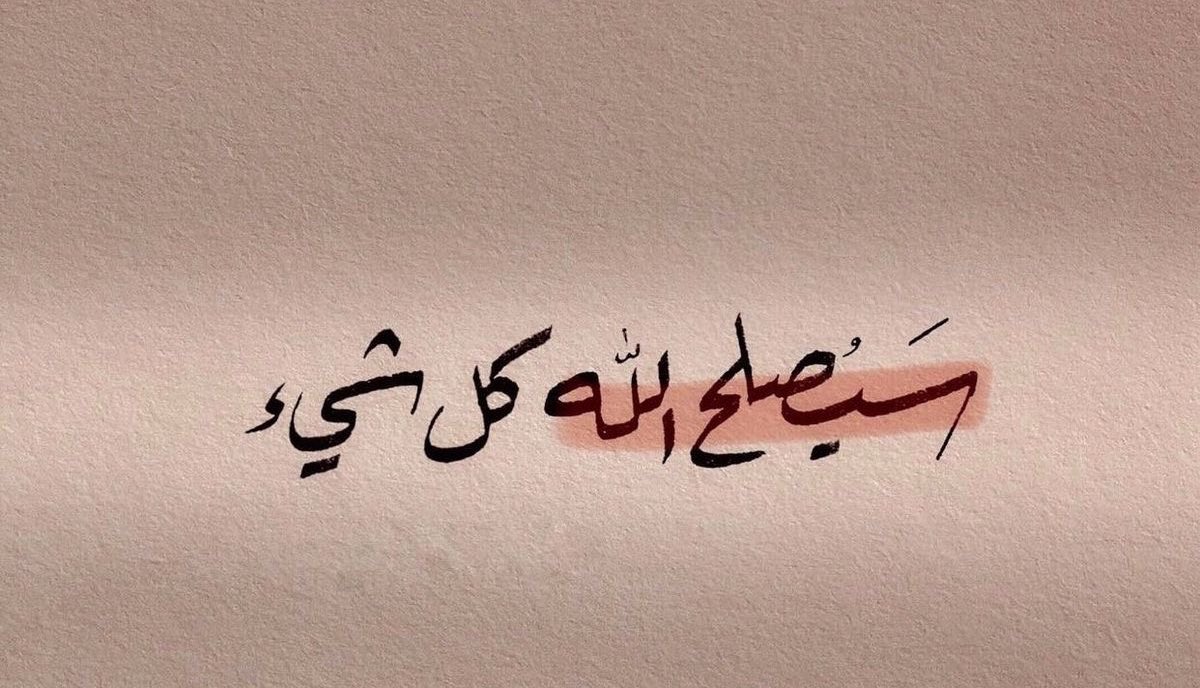 سَيُصلح اللّٰه كل شيء